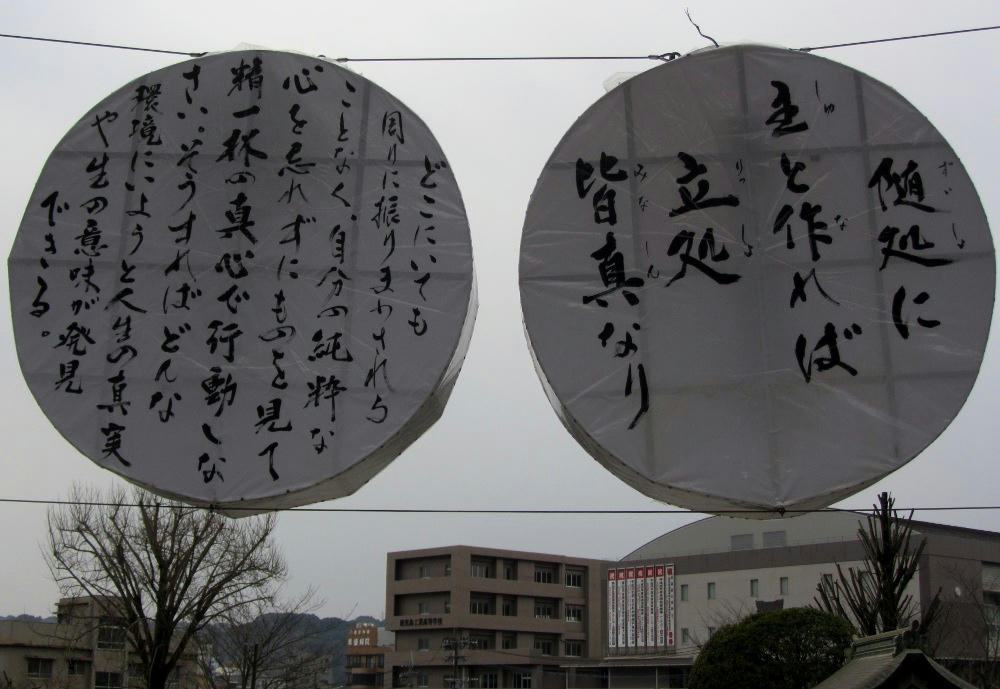 ずいしょ
随処に
しゅ　な
主と作れば
りっしょ
立処
みなしん
皆真なり
どこにいても
周りに振りまわされる
ことなく、自分の純粋な
心を忘れずにものを見て
精一杯の真心で行動しな
さい。そうすればどんな
環境にいようと人生の真実
や生の意味が発見
できる。